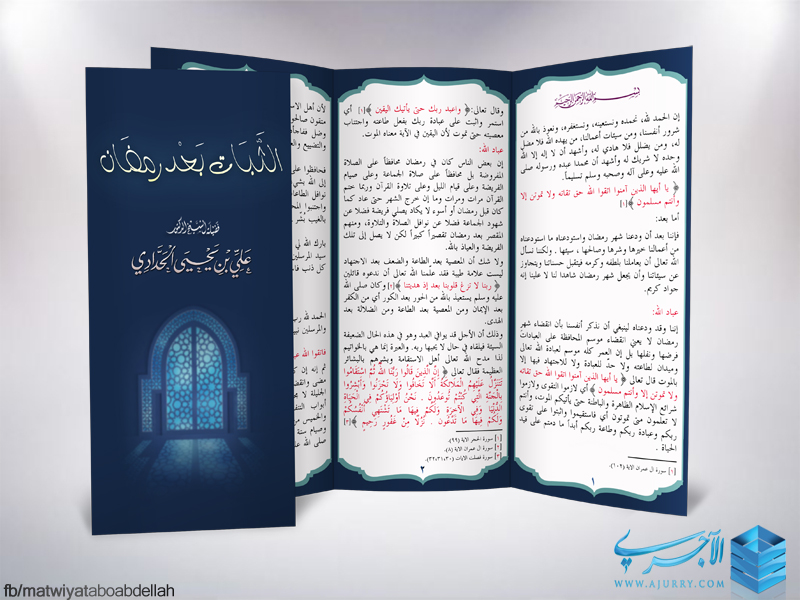 الثبات بعد رمضان
فضيلة الشيخ الدكتور
علي بن يحيى الحدادي
بسم الله الرحمن الرحيم
إن الحمد لله، نحمده ونستعينه، ونستغفره، ونعوذ بالله من
شرور أنفسنا، ومن سيئات أعمالنا، من يهده الله فلا مضل
له، ومن يضلل فلا هادي له، وأشهد أن لا إله إلا الله
وحده لا شريك له وأشهد أن محمدا عبده ورسوله صلى
الله عليه وعلى آله وصحبه وسلم تسليماً.
﴿ يا أيها الذين آمنوا اتقوا الله حق تقاته ولا تموتن إلا
وأنتم مسلمون ﴾[١]
أما بعد:
فإننا بعد أن ودعنا شهر رمضان واستودعناه ما استودعناه
من أعمالنا خيرها وشرها وصالحها ، سيئها . ولكننا نسأل
الله تعالى أن يعاملنا بلطفه وكرمه فيتقبل حسناتنا ويتجاوز
عن سيئاتنا وأن يجعل شهر رمضان شاهدا لنا لا علينا إنه
جواد كريم.
عباد الله:
إننا وقد ودعناه لينبغي أن نذكر أنفسنا بأن انقضاء شهر
رمضان لا يعني انقضاء موسم المحافظة على العبادات
فرضها ونفلها بل إن العمر كله موسم لعبادة الله تعالى
وميدان لطاعته ولا حد للعبادة ولا للاجتهاد فيها إلا
بالموت قال تعالى ﴿ يا أيها الذين آمنوا اتقوا الله حق تقاته
ولا تموتن إلا وأنتم مسلمون ﴾ أي لازموا التقوى ولازموا
شرائع الإسلام الظاهرة والباطنة حتى يأتيكم الموت، وأنتم
لا تعلمون متى تموتون أي فاستقيموا واثبتوا على تقوى
ربكم وعبادة ربكم وطاعة ربكم أبداً ما دمتم على قيد
الحياة .
[١] سورة ال عمران الاية (١٠٢).
١
وقال تعالى:﴿ واعبد ربك حتى يأتيك اليقين ﴾[١] أي
استمر واثبت على عبادة ربك بفعل طاعته واجتناب
معصيته حتى تموت لأن اليقين في الآية معناه الموت.
عباد الله:
إن بعض الناس كان في رمضان محافظاً على الصلاة
المفروضة بل محافظاً على صلاة الجماعة وعلى صيام
الفريضة وعلى قيام الليل وعلى تلاوة القرآن وربما ختم
القرآن مرات ومرات وما إن خرج الشهر حتى عاد كما
كان قبل رمضان أو أسوء لا يكاد يصلي فريضة فضلا عن
شهود الجماعة فضلا عن نوافل الصلاة والتلاوة، ومنهم
المقصر بعد رمضان تقصيراً كبيراً لكن لا يصل إلى تلك
الفريضة والعياذ بالله.
ولا شك أن المعصية بعد الطاعة والضعف بعد الاجتهاد
ليست علامة طيبة فقد علمنا الله تعالى أن ندعوه قائلين
﴿ ربنا لا تزغ قلوبنا بعد إذ هديتنا ﴾[٢] وكان صلى الله
عليه وسلم يستعيذ بالله من الحور بعد الكور أي من الكفر
بعد الإيمان ومن المعصية بعد الطاعة ومن الضلالة بعد
الهدى.
وذلك أن الأجل قد يوافي العبد وهو في هذه الحال الضعيفة
السيئة فيلقاه في حال لا يحبها ربه. والعبرة إنما هي بالخواتيم
لذا مدح الله تعالى أهل الاستقامة وبشرهم بالبشائر
العظيمة فقال تعالى ﴿ إِنَّ الَّذِينَ قَالُوا رَبُّنَا اللَّهُ ثُمَّ اسْتَقَامُوا
تَتَنَزَّلُ عَلَيْهِمُ الْمَلَائِكَةُ أَلَّا تَخَافُوا وَلَا تَحْزَنُوا وَأَبْشِرُوا
بِالْجَنَّةِ الَّتِي كُنْتُمْ تُوعَدُونَ . نَحْنُ أَوْلِيَاؤُكُمْ فِي الْحَيَاةِ
الدُّنْيَا وَفِي الْآخِرَةِ وَلَكُمْ فِيهَا مَا تَشْتَهِي أَنْفُسُكُمْ
وَلَكُمْ فِيهَا مَا تَدَّعُونَ . نُزُلًا مِنْ غَفُورٍ رَحِيمٍ ﴾[٣]
[١] سورة الحجر الاية (٩٩).
[٢] سورة ال عمران الاية (٨).
[٣] سورة فصلت الايات (٣٠،٣١،٣٢).
٢
الآجري
WWW.AJURRY.COM
fb/matwiyataboabdellah